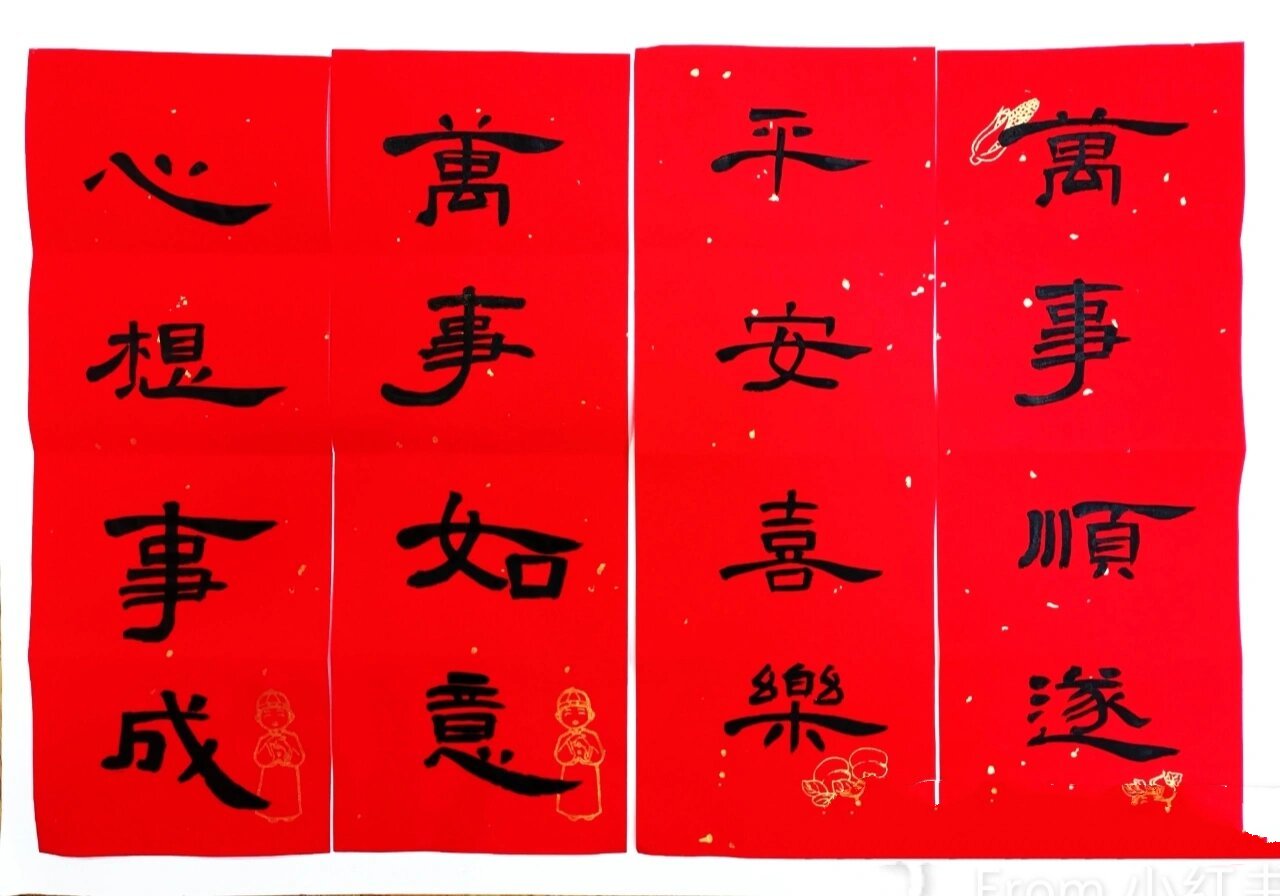 萬事順遂
平安喜樂
萬事如意
心想事成
From 小红书